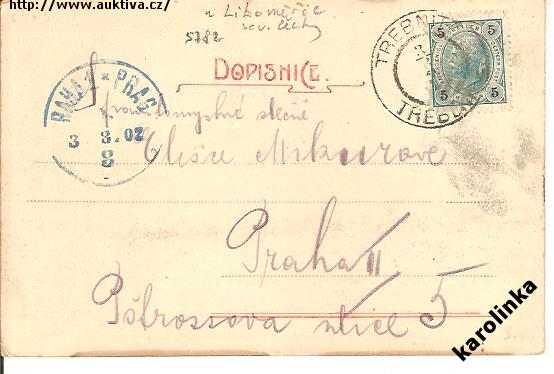 http://www.auktiva.cz/
u Litoměřic
sev. Čechy
5782
DOPISNICE.
TŘEBNITZ
TŘEBENICE
5 5
5 5
PRAHA 1 * PRAG
3 3.02
8
slečně
Elišce Mikurove
Praha II
Pštrossova ulice 5
karolinka